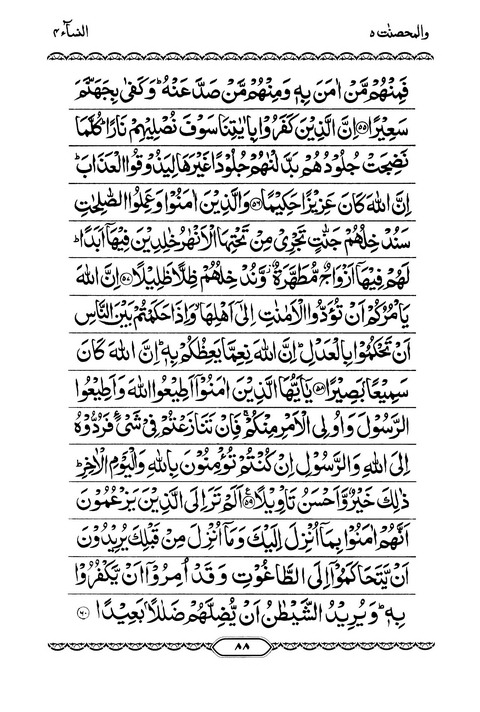 والمحصنٰت ۵
النساء ۴
فَمِنْهُمْ مَّنْ اٰمَنَ بِهٖ وَمِنْهُمْ مَّنْ صَدَّ عَنْهُ ؕ وَكَفٰى بِجَهَنَّمَ
سَعِيْرًا ﴿۵۵﴾ اِنَّ الَّذِيْنَ كَفَرُوْا بِاٰيٰتِنَا سَوْفَ نُصْلِيْهِمْ نَارًا ؕ كُلَّمَا
نَضِجَتْ جُلُوْدُهُمْ بَدَّلْنٰهُمْ جُلُوْدًا غَيْرَهَا لِيَذُوْقُوا الْعَذَابَ ؕ
اِنَّ اللّٰهَ كَانَ عَزِيْزًا حَكِيْمًا ﴿۵۶﴾ وَالَّذِيْنَ اٰمَنُوْا وَعَمِلُوا الصّٰلِحٰتِ
سَنُدْخِلُهُمْ جَنّٰتٍ تَجْرِيْ مِنْ تَحْتِهَا الْاَنْهٰرُ خٰلِدِيْنَ فِيْهَاۤ اَبَدًا ؕ
لَهُمْ فِيْهَاۤ اَزْوَاجٌ مُّطَهَّرَةٌ ۫ وَّنُدْخِلُهُمْ ظِلًّا ظَلِيْلًا ﴿۵۷﴾ اِنَّ اللّٰهَ
يَاْمُرُكُمْ اَنْ تُؤَدُّوا الْاَمٰنٰتِ اِلٰۤى اَهْلِهَا ۙ وَاِذَا حَكَمْتُمْ بَيْنَ النَّاسِ
اَنْ تَحْكُمُوْا بِالْعَدْلِ ؕ اِنَّ اللّٰهَ نِعِمَّا يَعِظُكُمْ بِهٖ ؕ اِنَّ اللّٰهَ كَانَ
سَمِيْعًۢا بَصِيْرًا ﴿۵۸﴾ يٰۤاَيُّهَا الَّذِيْنَ اٰمَنُوْۤا اَطِيْعُوا اللّٰهَ وَاَطِيْعُوا
الرَّسُوْلَ وَاُولِي الْاَمْرِ مِنْكُمْ ۚ فَاِنْ تَنَازَعْتُمْ فِيْ شَيْءٍ فَرُدُّوْهُ
اِلَى اللّٰهِ وَالرَّسُوْلِ اِنْ كُنْتُمْ تُؤْمِنُوْنَ بِاللّٰهِ وَالْيَوْمِ الْاٰخِرِ ؕ
ذٰلِكَ خَيْرٌ وَّاَحْسَنُ تَاْوِيْلًا ﴿۵۹﴾ اَلَمْ تَرَ اِلَى الَّذِيْنَ يَزْعُمُوْنَ
اَنَّهُمْ اٰمَنُوْا بِمَاۤ اُنْزِلَ اِلَيْكَ وَمَاۤ اُنْزِلَ مِنْ قَبْلِكَ يُرِيْدُوْنَ
اَنْ يَّتَحَاكَمُوْۤا اِلَى الطَّاغُوْتِ وَقَدْ اُمِرُوْۤا اَنْ يَّكْفُرُوْا
بِهٖ ؕ وَيُرِيْدُ الشَّيْطٰنُ اَنْ يُّضِلَّهُمْ ضَلٰلًۢا بَعِيْدًا ﴿۶۰﴾
۸۸